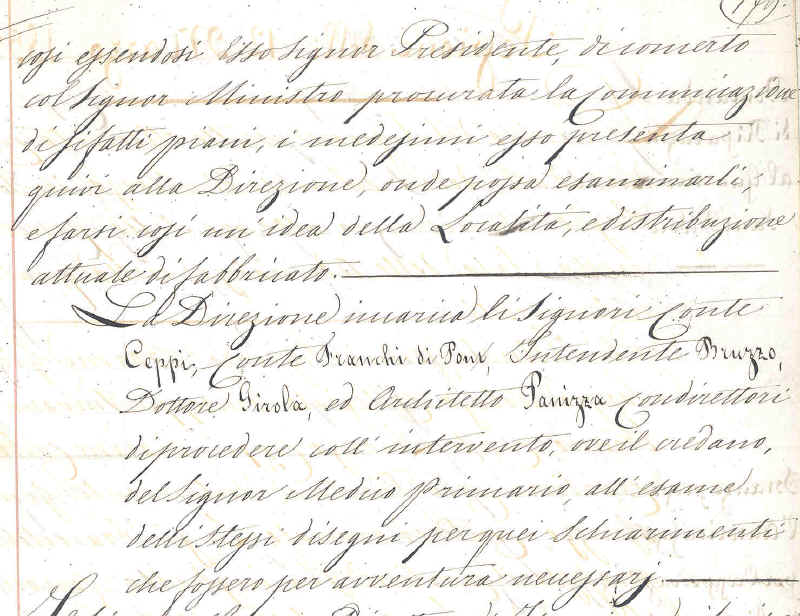 179.
cosi essendosi Esso Signor Presidente, di concerto
col Signor Ministro procurata la Comunicazione
di sifatti piani, i medesimi esso presenta
quivi alla Direzione, onde possa esaminarli
e farsi cosi un idea della Località, e distribuzione
attuale di fabbricato.
La Direzione incarica li Signori Conte
Ceppi, Conte Franchi di Pont, Intendente Bruzzo,
Dottore Girola, ed Architetto Panizza Condirettori
di procedere coll' intervento, ove il credano,
del Signor Medico Primario, all' esame
delli stessi disegni per quei Schiarimenti
che fossero per avventura necessarj.